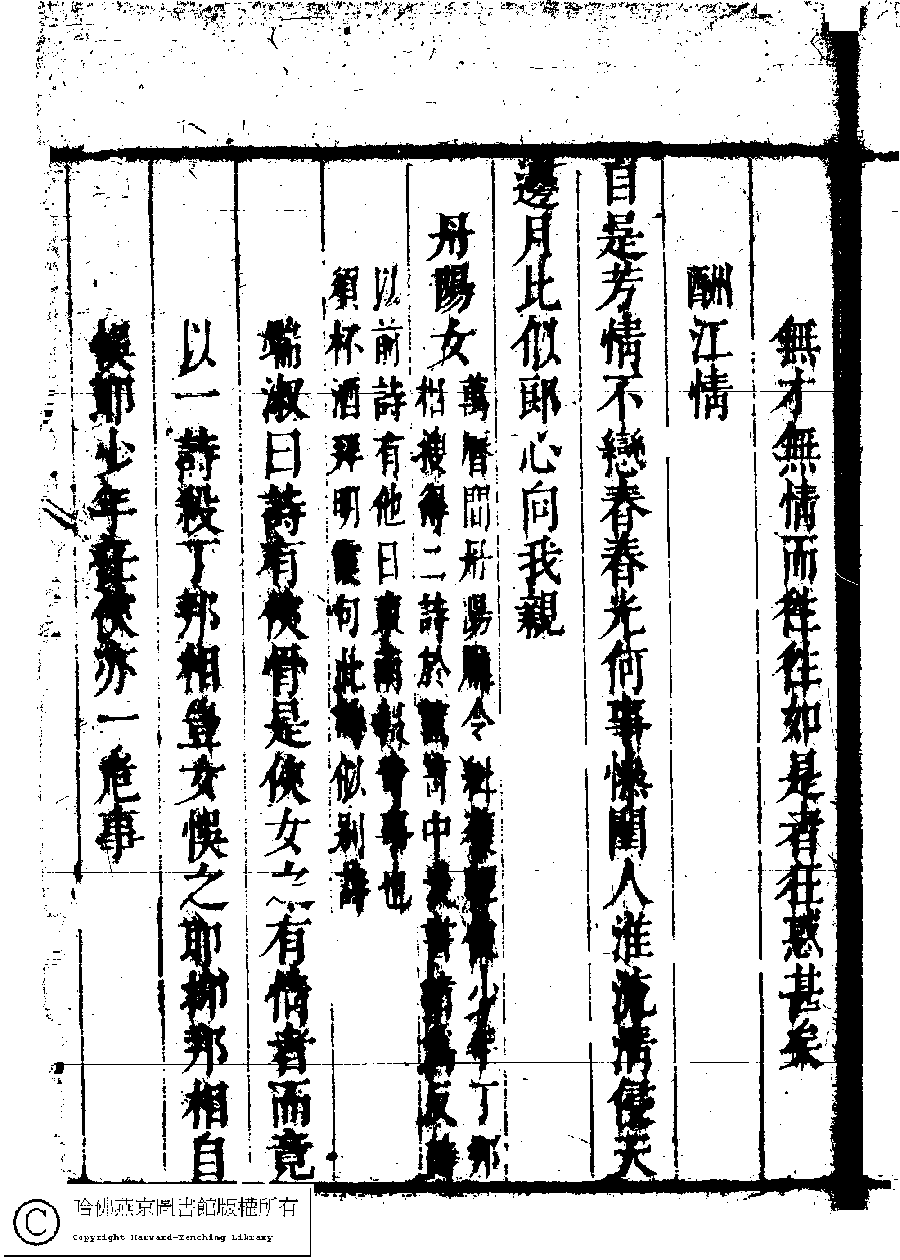 無才無情而徃徃如是者狂惑甚矣
酬江情
自是芳情不戀春春光何事慘閨人淮流清侵天
邊月比似郎心向我親
丹陽女
萬曆間丹陽縣令少年丁邦
相搜得二詩於中反詩
以前詩有他日事也
須杯酒拜明句此似别詩
端淑曰詩有俠骨是俠女之有情者而竟
以一詩殺丁邦相豈女悞之耶抑邦相自
悞耶少年任俠亦一危事
哈佛燕京圖書館版權所有
Copyright Harvard-Yenching Library